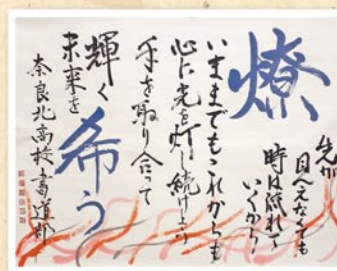 燎
先が
見えなくても
時は流れて
いくから
いままでもこれからも
心に光を灯し続けよう
手を取り合って
輝く
未来を
希う
奈良北高校書道部